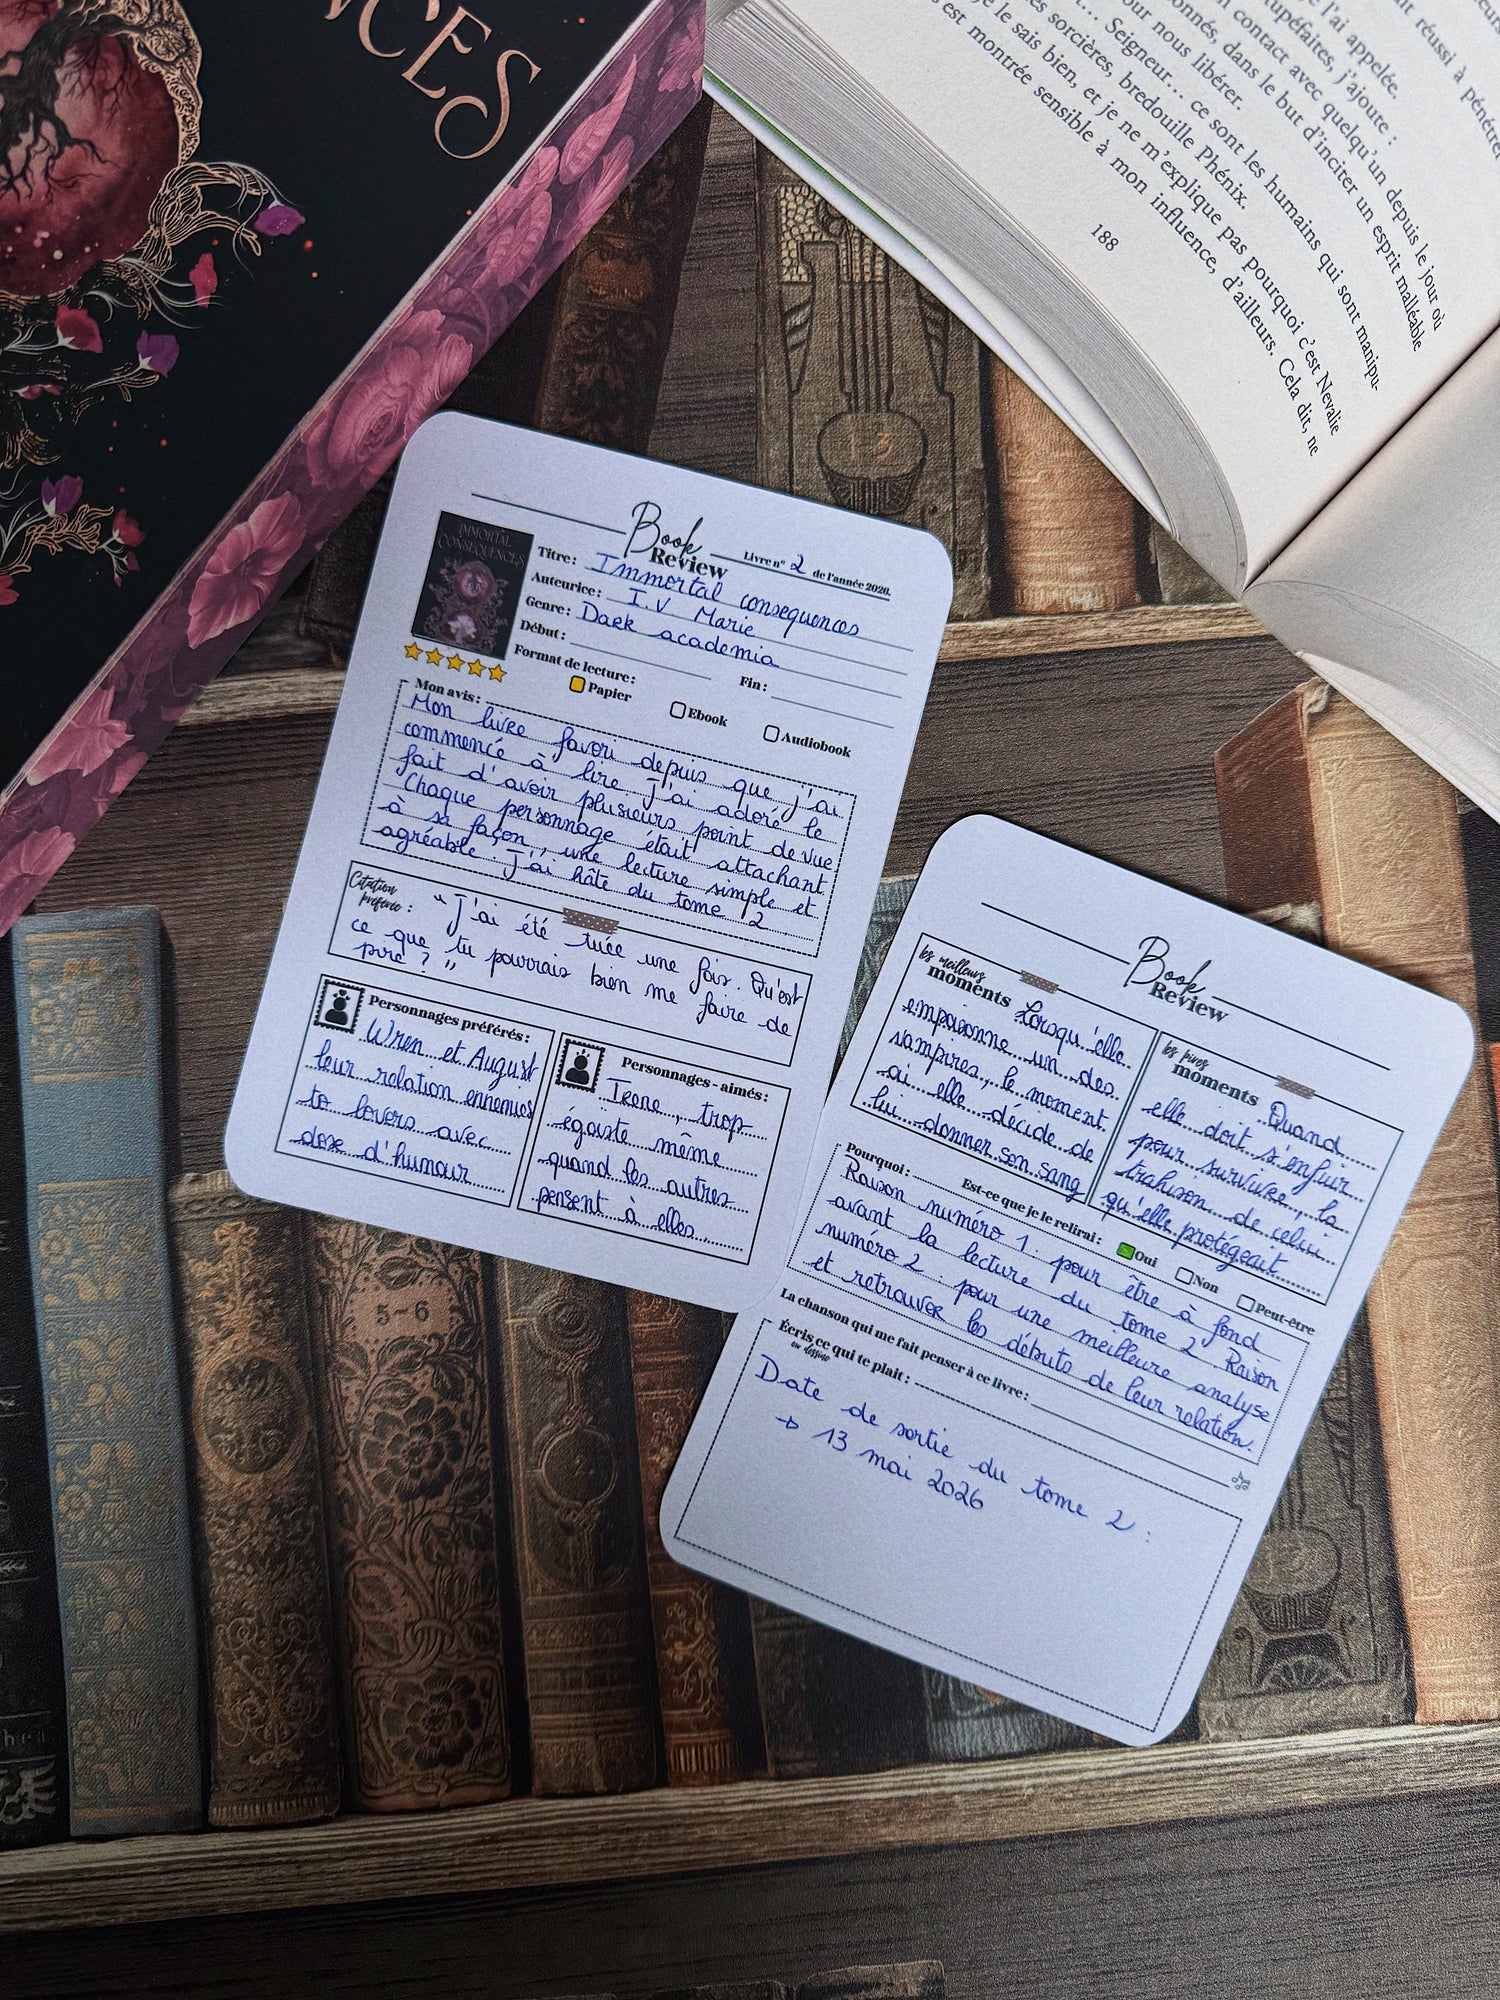 NCES
réussi à pénétrer
je l'ai appelée.
stupéfaites, j'ajoute :
en contact avec quelqu'un depuis le jour où
onnés, dans le but d'inciter un esprit malléable
our nous libérer.
t… Seigneur… ce sont les humains qui sont manipu-
es sorcières, bredouille Phénix.
je le sais bien, et je ne m'explique pas pourquoi c'est Nevalie
est montrée sensible à mon influence, d'ailleurs. Cela dit, ne
188
Book
Review
Livre n° 2 de l'année 2026.
IMMORTAL
CONSEQUENCES
Titre : Immortal consequences
Auteurice : I.V Marie
Genre : Dark academia
Début : Fin :
Format de lecture :
Papier Ebook Audiobook
Mon avis :
Mon livre favori depuis que j'ai
commencé à lire. J'ai adoré le
fait d'avoir plusieurs point de vue
Chaque personnage était attachant
à sa façon, une lecture simple et
agréable. J'ai hâte du tome 2
Citation
préférée :
"J'ai été tuée une fois. Qu'est
ce que tu pourrais bien me faire de
pire ? "
Personnages préférés :
Wren et August
leur relation ennemies
to lovers avec
dose d'humour
Personnages - aimés :
Irene, trop
égoïste même
quand les autres
pensent à elles.
Book
Review
les meilleurs
moments
Lorsqu'elle
empoisonne un des
vampires, le moment
où elle décide de
lui donner son sang
les pires
moments
Quand
elle doit s'enfuir
pour survivre, la
trahison de celui
qu'elle protégeait
Est-ce que je le relirai : Oui Non Peut-être
Pourquoi :
Raison numéro 1 : pour être à fond
avant la lecture du tome 2 Raison
numéro 2 : pour une meilleure analyse
et retrouver les débuts de leur relation.
La chanson qui me fait penser à ce livre :
Écris ce qui te plait :
ou dessine
Date de sortie du tome 2 :
→ 13 mai 2026
13
5-6